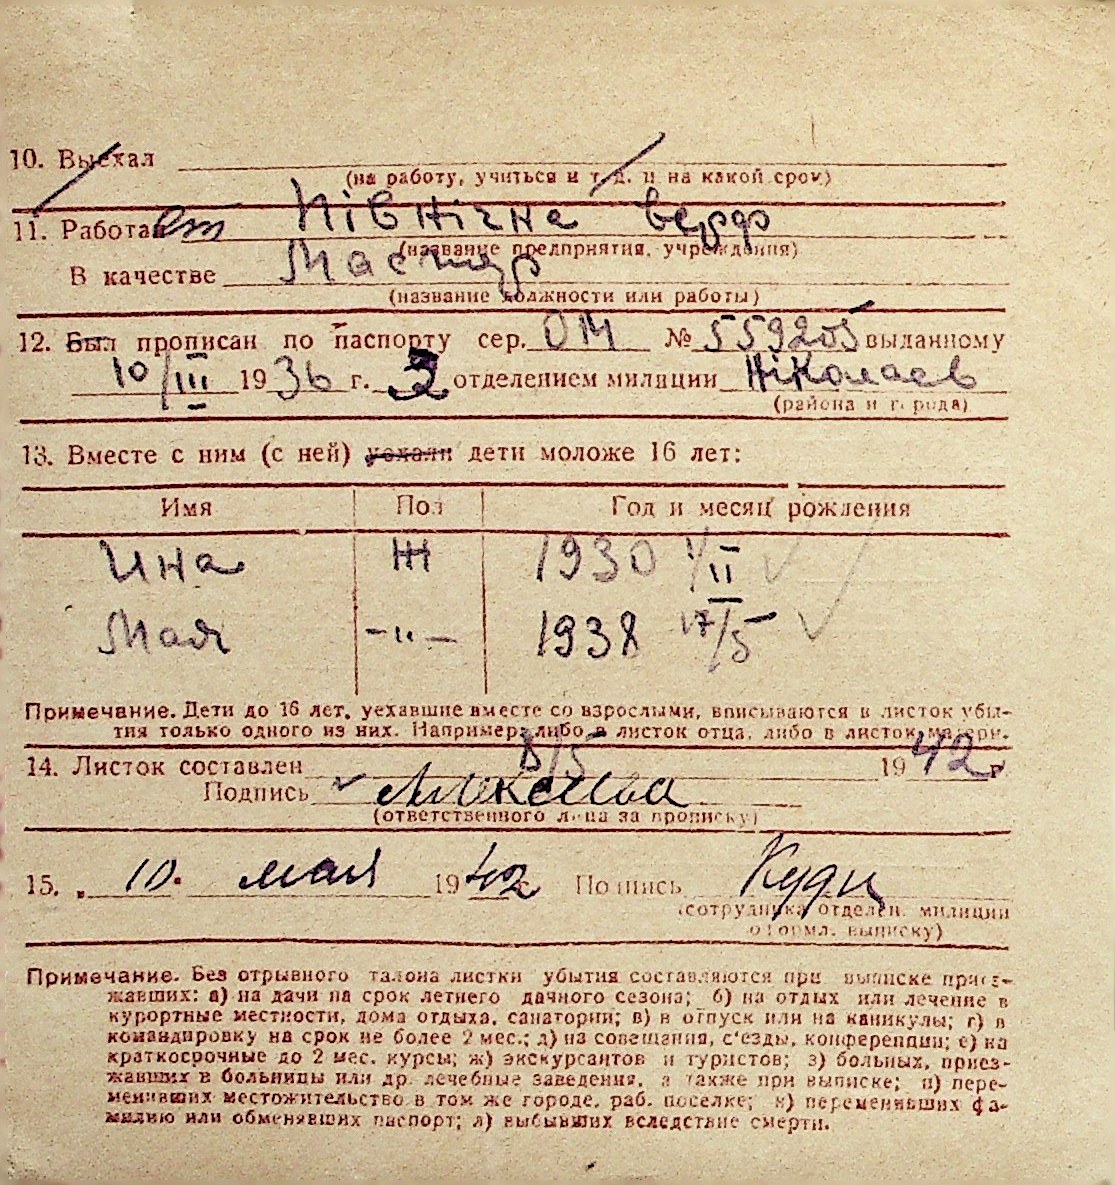 10. Выехал
(на работу, учиться и т. д. и на какой срок)
11. Работает Північна верф
(название предприятия, учреждения)
В качестве Мастер
(название должности или работы)
12. Был прописан по паспорту сер. ОМ № 559205 выданному
10/III 1936 г. 2 отделением милиции Ніколаев
(района и города)
13. Вместе с ним (с ней) уехали дети моложе 16 лет:
Имя Пол Год и месяц рождения
Ина Ж 1930 1/II
Мая -"- 1938 17/5
Примечание. Дети до 16 лет, уехавшие вместе со взрослыми, вписываются в листок убы-
тия только одного из них. Например: либо в листок отца, либо в листок матери.
14. Листок составлен 8/5 1942 г.
Подпись
(ответственного лица за прописку)
15. „ 10 " мая 1942 г. Подпись
(сотрудника отделен. милиции
оформл. выписку)
Примечание. Без отрывного талона листки убытия составляются при выписке приез-
жавших: а) на дачи на срок летнего дачного сезона; б) на отдых или лечение в
курортные местности, дома отдыха, санатории; в) в отпуск или на каникулы; г) в
командировку на срок не более 2 мес.; д) на совещания, с'езды, конференции; е) на
краткосрочные до 2 мес. курсы; ж) экскурсантов и туристов; з) больных, приез-
жавших в больницы или др. лечебные заведения, а также при выписке; и) пере-
менивших местожительство в том же городе, раб. поселке; к) переменивших фа-
милию или обменявших паспорт; л) выбывших вследствие смерти.